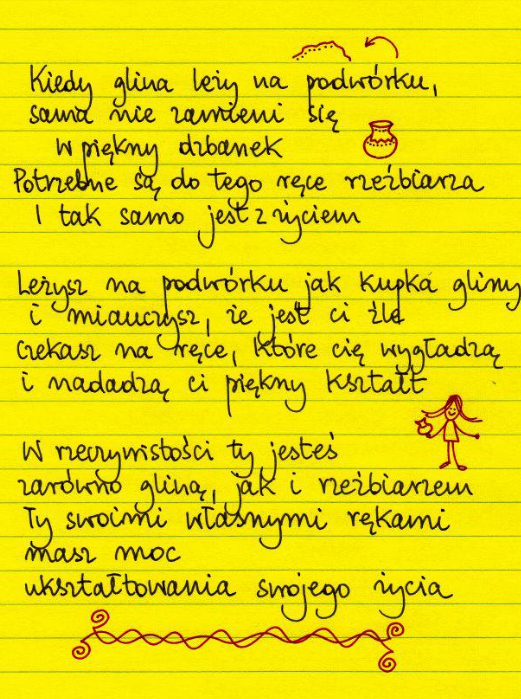 Kiedy glina leży na podwórku,
sama nie zamieni się
w piękny dzbanek
Potrzebne są do tego ręce rzeźbiarza
I tak samo jest z życiem
Leżysz na podwórku jak kupka gliny
i miauczysz, że jest ci źle
czekasz na ręce, które cię wygładzą
i nadadzą ci piękny kształt
W rzeczywistości ty jesteś
zarówno gliną, jak i rzeźbiarzem
Ty swoimi własnymi rękami
masz moc
ukształtowania swojego życia